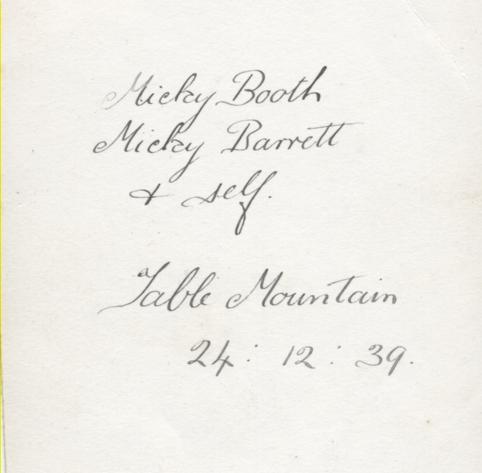 Micky Booth
Micky Barrett
+ self.
Table Mountain
24: 12: 39.